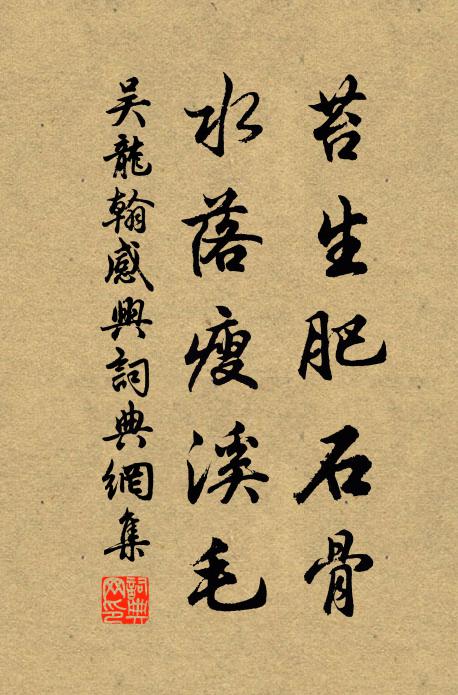 苔生肥石骨
水落瘦溪毛
吴龍翰感興詞典網集
詞典网印